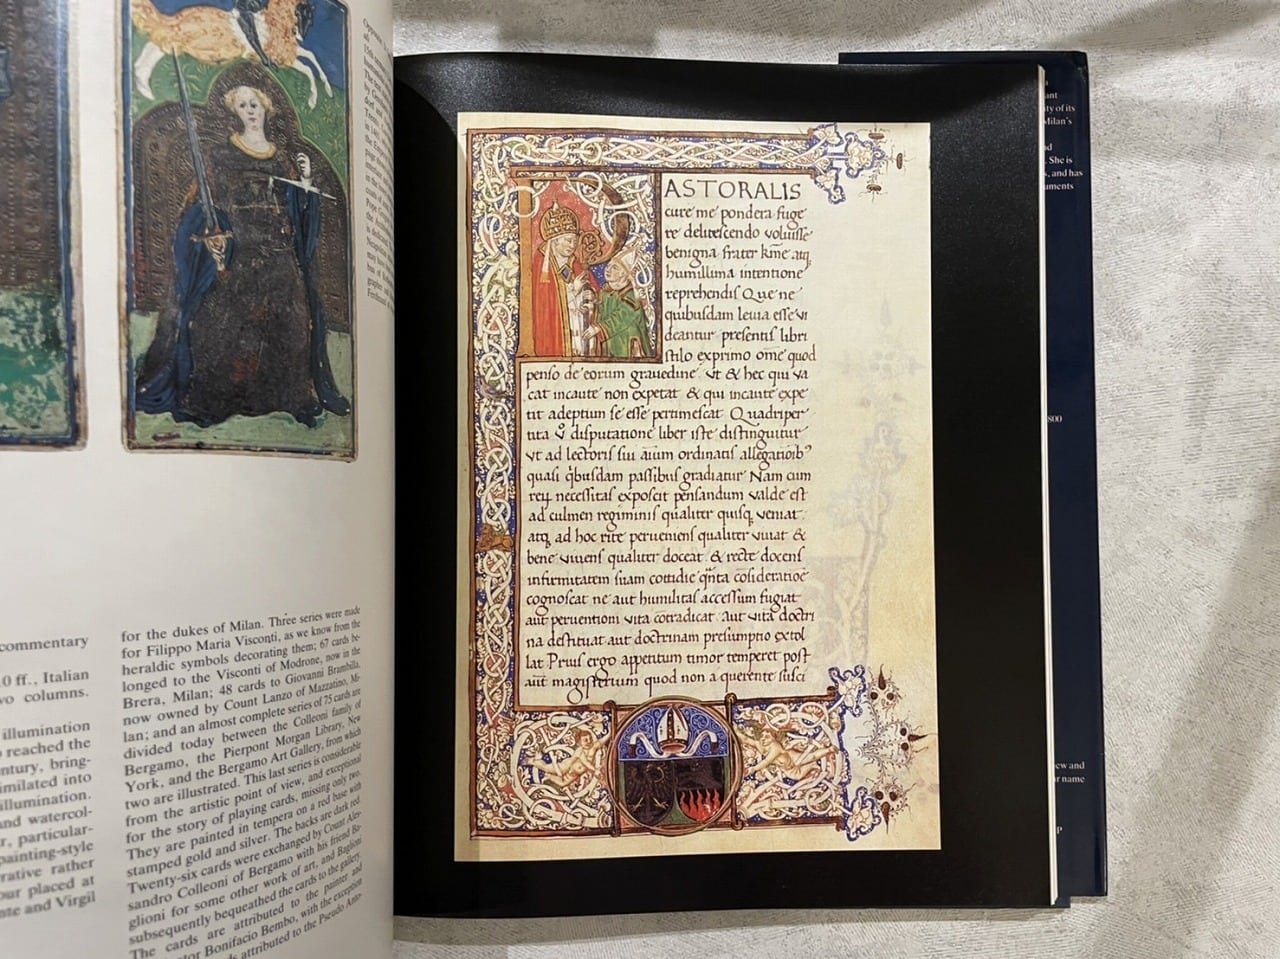 commentary
0 ff., Italian
two columns.
illumination
reached the
century, bring-
imilated into
illumination.
and watercol-
r, particular-
painting-style
rative rather
our placed at
nte and Virgil
for the dukes of Milan. Three series were made
for Filippo Maria Visconti, as we know from the
heraldic symbols decorating them; 67 cards be-
longed to the Visconti of Modrone, now in the
Brera, Milan; 48 cards to Giovanni Brambilla,
now owned by Count Lanzo of Mazzatino, Mi-
lan; and an almost complete series of 75 cards are
divided today between the Colleoni family of
Bergamo, the Pierpont Morgan Library, New
York, and the Bergamo Art Gallery, from which
two are illustrated. This last series is considerable
from the artistic point of view, and exceptional
for the story of playing cards, missing only two.
They are painted in tempera on a red base with
stamped gold and silver. The backs are dark red.
Twenty-six cards were exchanged by Count Ales-
sandro Colleoni of Bergamo with his friend Ba-
glioni for some other work of art, and Baglioni
subsequently bequeathed the cards to the gallery.
The cards are attributed to the painter and
Bonifacio Bembo, with the exception
attributed to the Pseudo Anto-
PASTORALIS
cure me pondera fuge
re delitescendo voluisse
benigna frater kme atq
humillima intentione
reprehendis Que ne
quibusdam leuia esse vi
deantur presentis libri
stilo exprimo ome quod
penso de eorum grauedine vt & hec qui va
cat incaute non expetat & qui incaute expe
tit adeptum se esse pertimescat Quadriper
tita disputatione liber iste distinguitur
vt ad lectoris sui aium ordinatis allegatioib
quasi qbusdam passibus gradiatur Nam cum
necessitas exposcit pensandum valde est
ad culmen regiminis qualiter quisq veniat
atq ad hoc rite perueniens qualiter viuat &
bene viuens qualiter doceat & recte docens
infirmitatem suam cottidie qnta cosideratioe
cognoscat ne aut humilitas accessum fugiat
aut peruentioni vita cotradicat aut vita doctri
na destituat aut doctrinam presumptio extol
lat Prius ergo appetitum timor temperet post
aut magisterium quod non a querente susci
ant
ity of its
Milan's
nd
. She is
s, and has
uments
800
ew and
ur name
P